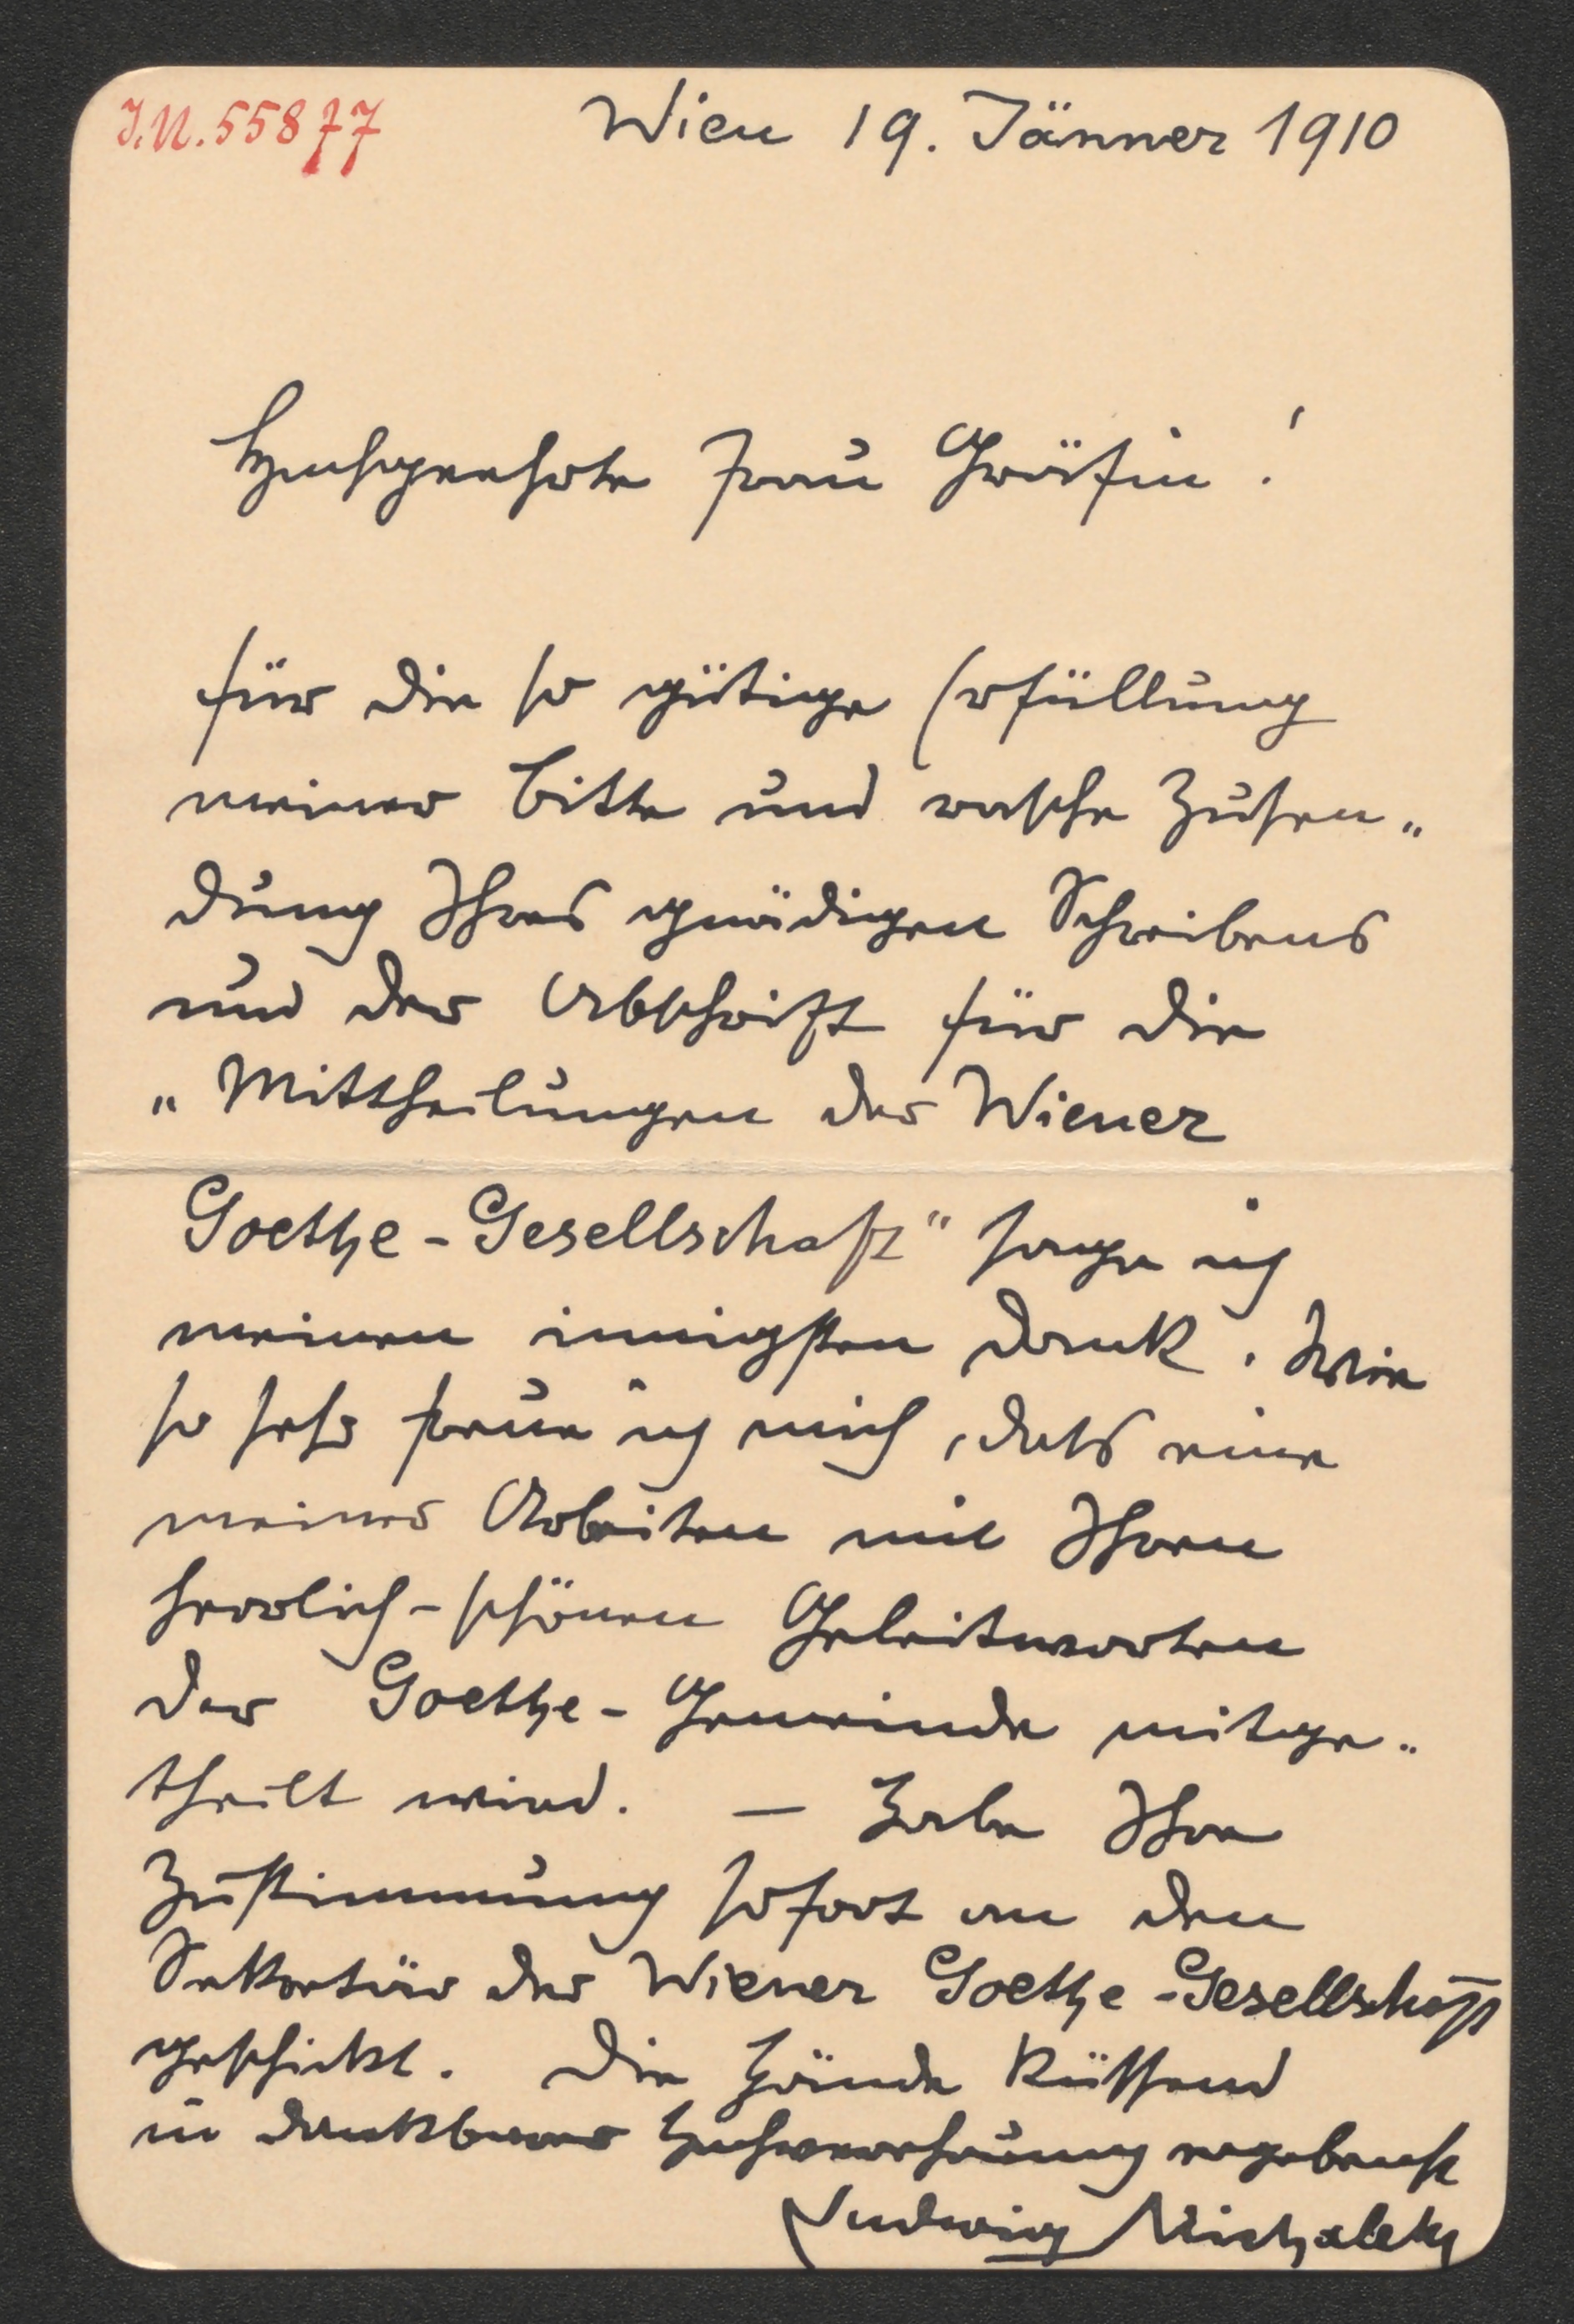 J.N. 55877
Wien 19. Jänner 1910
Hochgeehrte Frau Gräfin!
für die so gütige Erfüllung
meiner Bitte und rasche Zusen„
dung Ihres gnädigen Schreibens
und der Abschrift für die
„Mittheilungen der Wiener
Goethe-Gesellschaft" sage ich
meinen innigsten Dank. Wie
so sehr freue ich mich, daß eine
meiner Arbeiten mit Ihren
herrlich-schönen Geleitworten
der Goethe-Gemeinde mitge„
theilt wird. – Habe Ihre
Zustimmung sofort an den
Sekretär der Wiener Goethe-Gesellschaft
geschickt. Die Hände küssend
in dankbarer Hochverehrung ergebenst
Ludwig Michalek